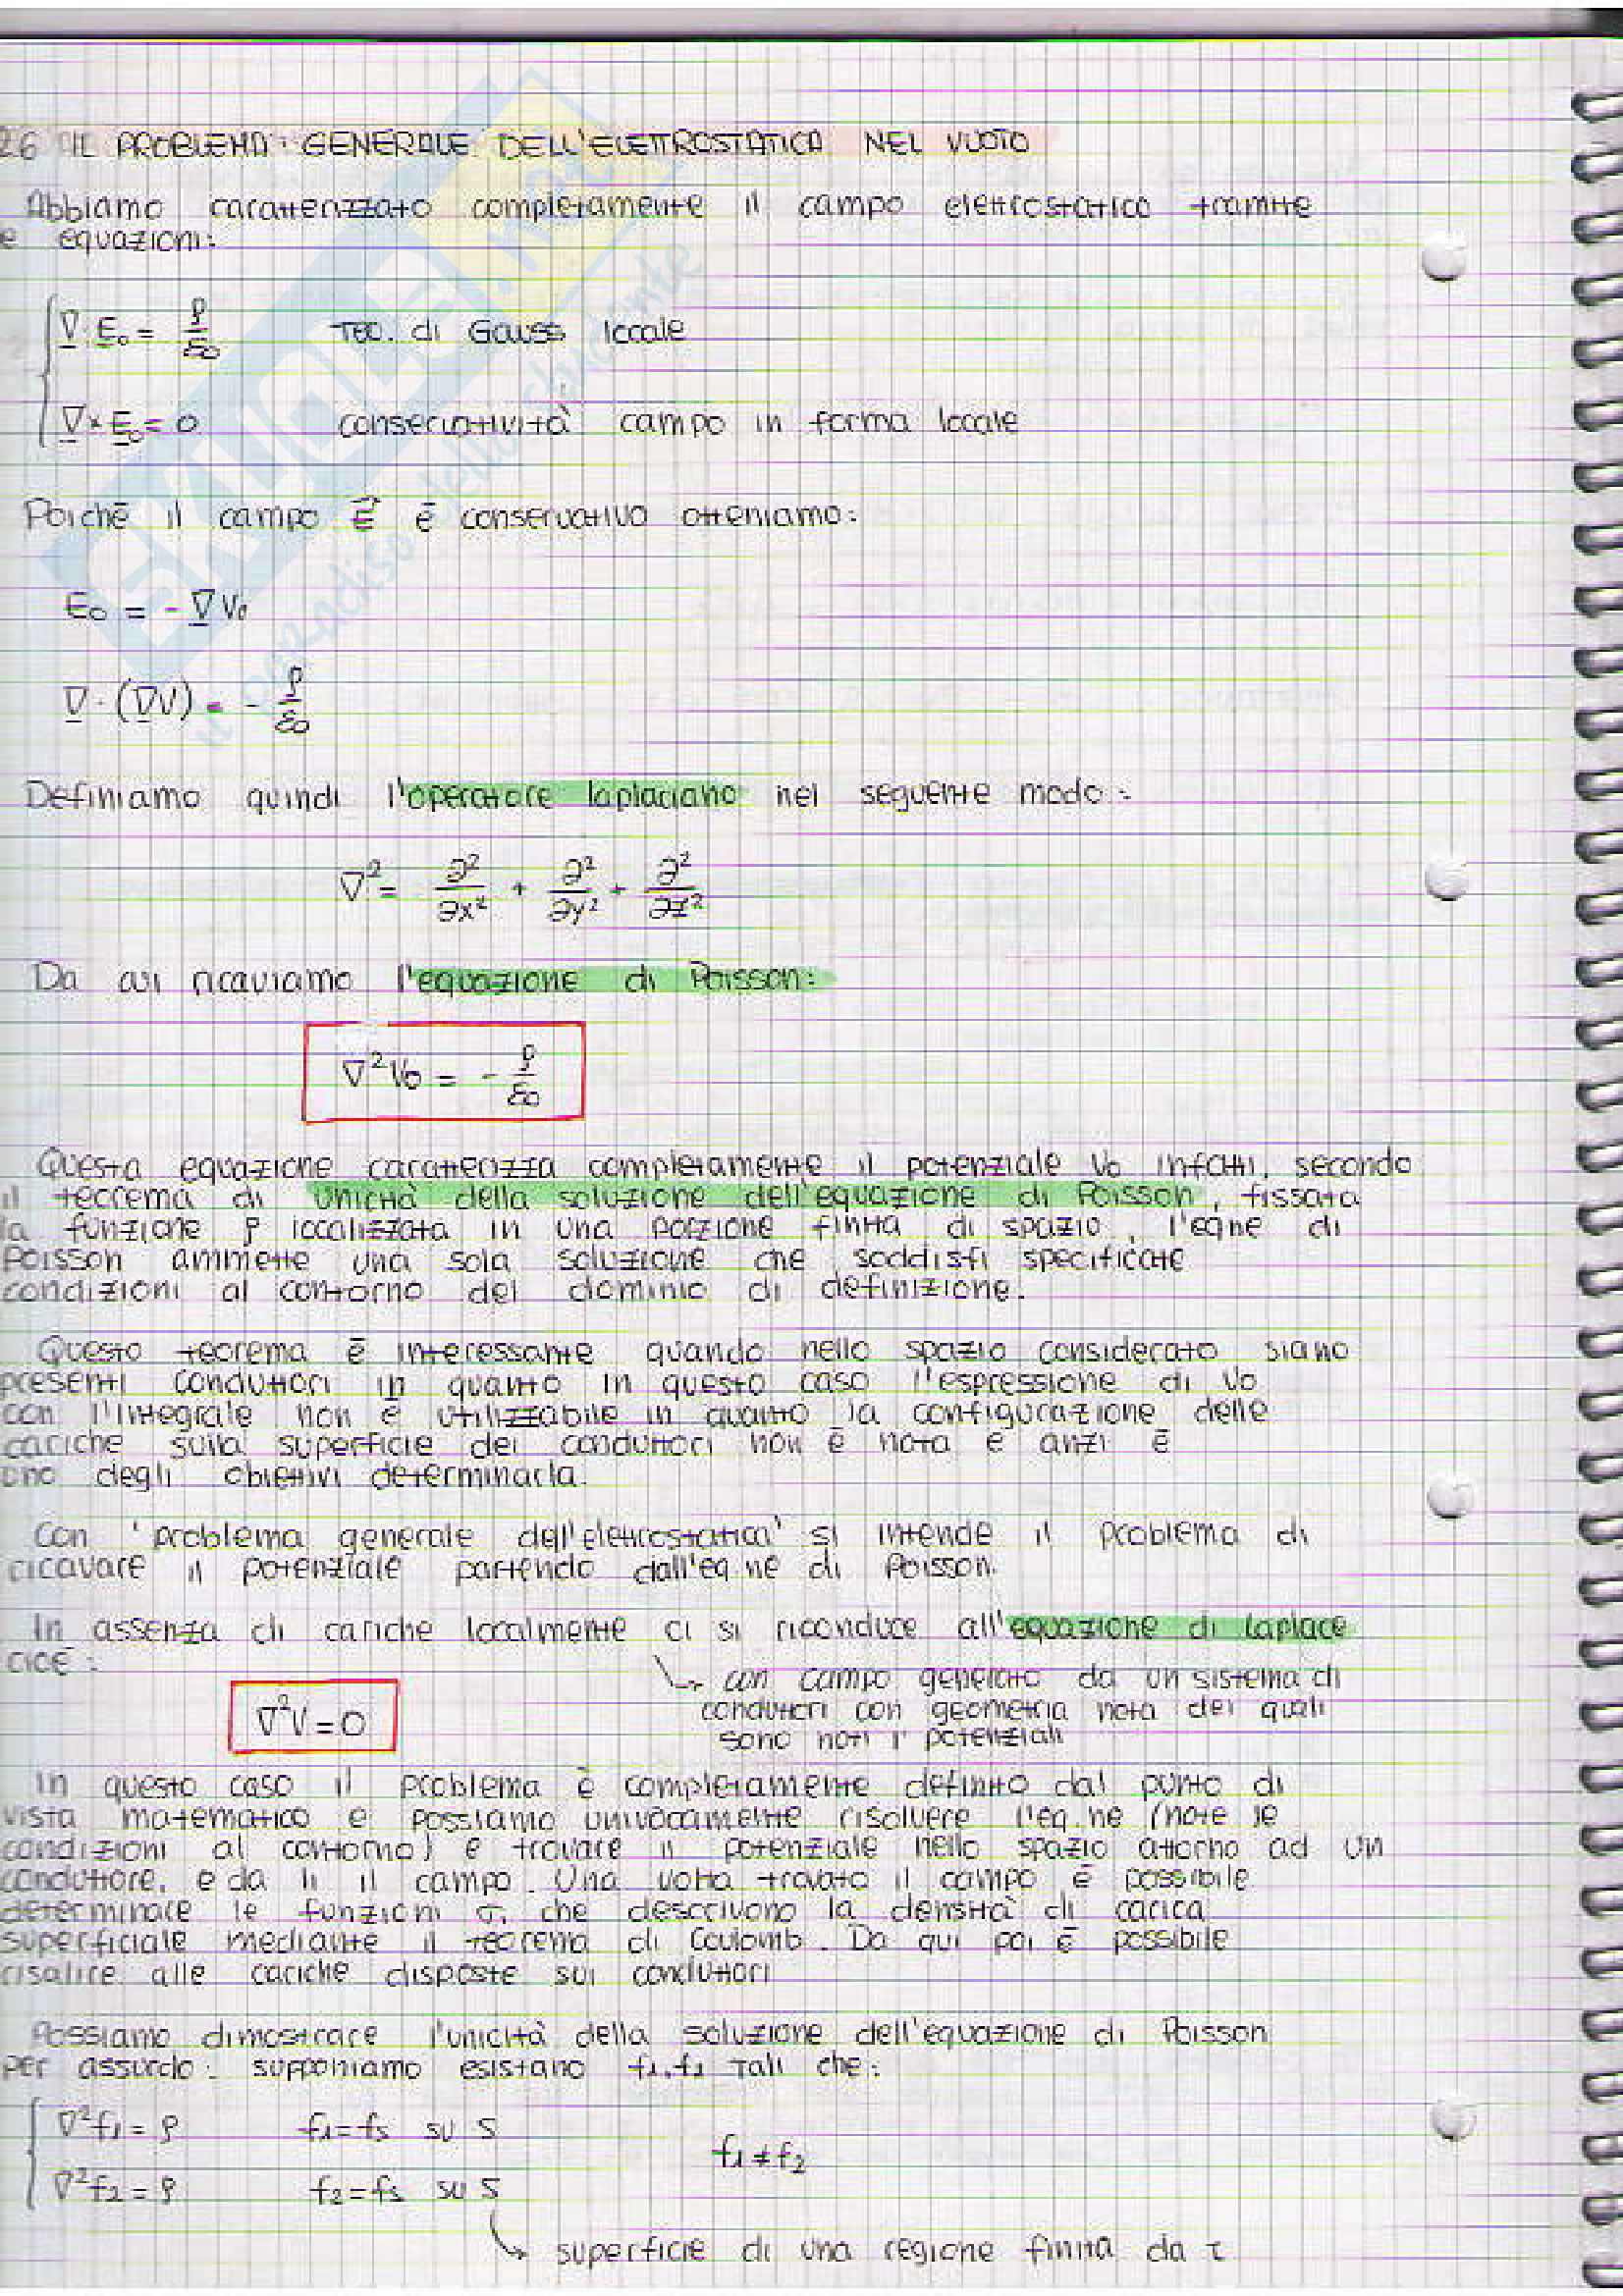 26 IL PROBLEMA GENERALE DELL'ELETTROSTATICA NEL VUOTO
Abbiamo caratterizzato completamente il campo elettrostatico tramite
e equazioni:
∇·E₀ = ρ/ε₀ teo. di Gauss locale
∇×E₀ = 0 conservatività campo in forma locale
Poichè il campo E è conservativo otteniamo:
E₀ = -∇V₀
∇·(∇V) = -ρ/ε₀
Definiamo quindi l'operatore laplaciano nel seguente modo:
∇² = ∂²/∂x² + ∂²/∂y² + ∂²/∂z²
Da cui ricaviamo l'equazione di Poisson:
∇²V₀ = -ρ/ε₀
Questa equazione caratterizza completamente il potenziale V₀ infatti, secondo
il teorema di unicità della soluzione dell'equazione di Poisson, fissata
la funzione ρ localizzata in una porzione finita di spazio, l'eqne di
Poisson ammette una sola soluzione che soddisfi specificate
condizioni al contorno del dominio di definizione.
Questo teorema è interessante quando nello spazio considerato siano
presenti conduttori in quanto in questo caso l'espressione di V₀
con l'integrale non è utilizzabile in quanto la configurazione delle
cariche sulla superficie dei conduttori non è nota e anzi è
uno degli obiettivi determinarla.
Con 'problema generale dell'elettrostatica' si intende il problema di
ricavare il potenziale partendo dall'eq.ne di Poisson.
In assenza di cariche localmente ci si riconduce all'equazione di Laplace
cioè:
con campo generato da un sistema di
conduttori con geometria nota dei quali
sono noti i potenziali
∇²V = 0
In questo caso il problema è completamente definito dal punto di
vista matematico e possiamo univocamente risolvere l'eq.ne (note le
condizioni al contorno) e trovare il potenziale nello spazio attorno ad un
conduttore, e da lì il campo. Una volta trovato il campo è possibile
determinare le funzioni σᵢ che descrivono la densità di carica
superficiale mediante il teorema di Coulomb. Da qui poi è possibile
risalire alle cariche disposte sui conduttori
Possiamo dimostrare l'unicità della soluzione dell'equazione di Poisson
per assurdo: supponiamo esistano f₁, f₂ tali che:
∇²f₁ = ρ f₁ = fs su S
f₁ ≠ f₂
∇²f₂ = ρ f₂ = fs su S
superficie di una regione finita da τ
SKUOLA.net
il paradiso dello studente